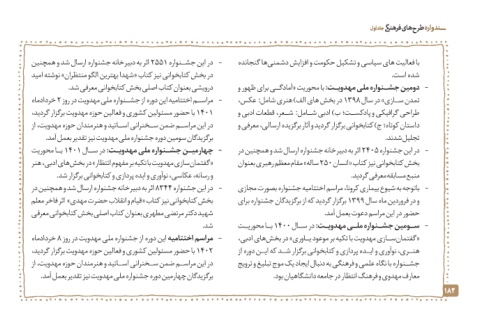 سندواره طرح‌های فرهنگی جلد اول
با فعالیت های سیاسی و تشکیل حکومت و افزایش دشمنی‌ها گنجانده
شده است.
- دومین جشنواره ملی مهدویت: با محوریت «آمادگی برای ظهور و
تمدن سازی» در سال ۱۳۹۸ در بخش های الف) هنری شامل: عکس،
طراحی گرافیکی و پادکست؛ ب) ادبی شامل: شعر، قطعات ادبی و
داستان کوتاه؛ ج) کتابخوانی برگزار گردید و آثار برگزیده ارسالی، معرفی و
تجلیل شدند.
- در این جشنواره ۲۴۰۵ اثر به دبیرخانه جشنواره ارسال شد و همچنین در
بخش کتابخوانی نیز کتاب «انسان ۲۵۰ ساله» مقام معظم رهبری بعنوان
منبع مسابقه معرفی گردید.
- باتوجه به شیوع بیماری کرونا، مراسم اختتامیه جشنواره بصورت مجازی
و در فروردین ماه سال ۱۳۹۹ برگزار گردید که از برگزیدگان جشنواره برای
حضور در این مراسم دعوت بعمل آمد.
- سومین جشنواره ملی مهدویت: در سال ۱۴۰۰ با محوریت
«گفتمان‌سازی مهدویت با تکیه بر موعود یاوری» در بخش‌های ادبی،
هنری، نوآوری و ایده پردازی و کتابخوانی برگزار شد که این دوره از
جشنواره با نگاه علمی و فرهنگی به دنبال ایجاد یک موج تبلیغ و ترویج
معارف مهدوی و فرهنگ انتظار در جامعه دانشگاهیان بود.
- در این جشنواره ۲۵۵۱ اثر به دبیرخانه جشنواره ارسال شد و همچنین
در بخش کتابخوانی نیز کتاب «شهدا بهترین الگو منتظران» نوشته امید
درویشی بعنوان کتاب اصلی بخش کتابخوانی معرفی شد.
- مراسم اختتامیه این دوره از جشنواره ملی مهدویت در روز ۲ خردادماه
۱۴۰۱ با حضور مسئولین کشوری و فعالین حوزه مهدویت برگزار گردید،
در این مراسم ضمن سخنرانی اساتید و هنرمندان حوزه مهدویت، از
برگزیدگان سومین دوره جشنواره ملی مهدویت نیز تقدیر بعمل آمد.
- چهارمین جشنواره ملی مهدویت: در سال ۱۴۰۱ با محوریت
«گفتمان‌سازی مهدویت با تکیه بر مفهوم انتظار» در بخش‌های ادبی، هنر
و رسانه، عکاسی، نوآوری و ایده پردازی و کتابخوانی برگزار شد.
- در این جشنواره ۸۳۴۴ اثر به دبیرخانه جشنواره ارسال شد و همچنین در
بخش کتابخوانی نیز کتاب «قیام و انقلاب حضرت مهدی» اثر فاخر معلم
شهید دکتر مرتضی مطهری بعنوان کتاب اصلی بخش کتابخوانی معرفی
شد.
- مراسم اختتامیه این دوره از جشنواره ملی مهدویت در روز ۸ خردادماه
۱۴۰۲ با حضور مسئولین کشوری و فعالین حوزه مهدویت برگزار گردید،
در این مراسم ضمن سخنرانی اساتید و هنرمندان حوزه مهدویت، از
برگزیدگان چهارمین دوره جشنواره ملی مهدویت نیز تقدیر بعمل آمد.
۱۸۲